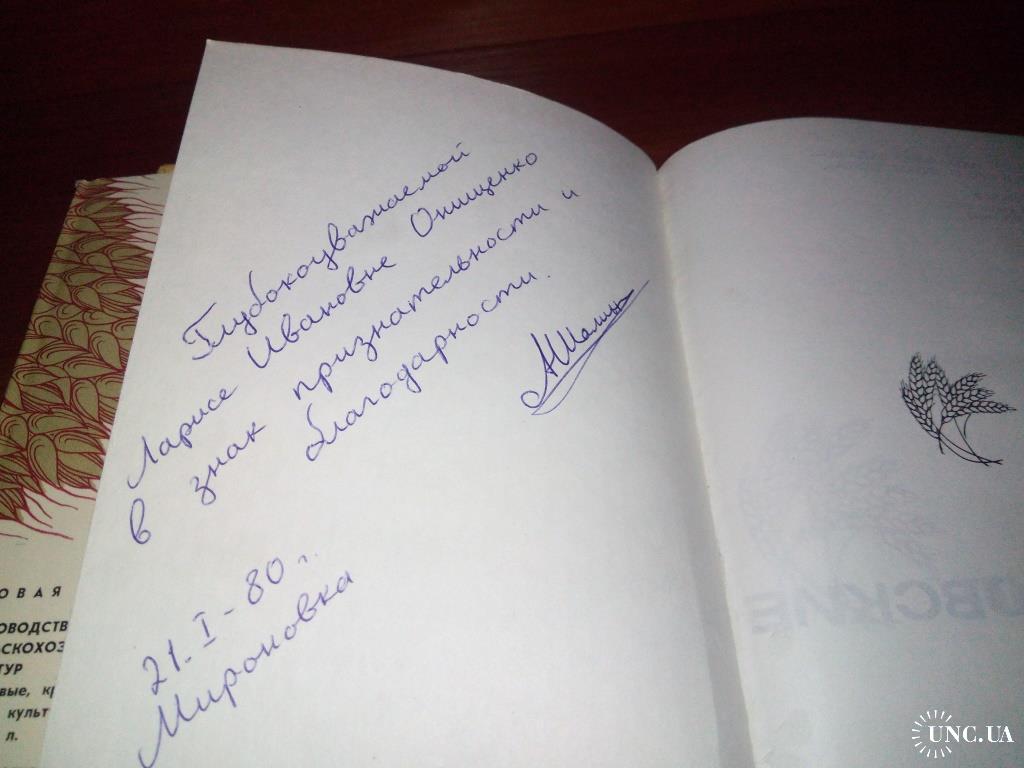 Глубокоуважаемой
Ларисе Ивановне Онищенко
в знак признательности и
благодарности.
21.I-80 г.
Мироновка
ОВАЯ
ОВОДСТВ
ЬСКОХОЗ
ТУР
вые, кр
культ
л.
ВСКИЕ
UNC.UA